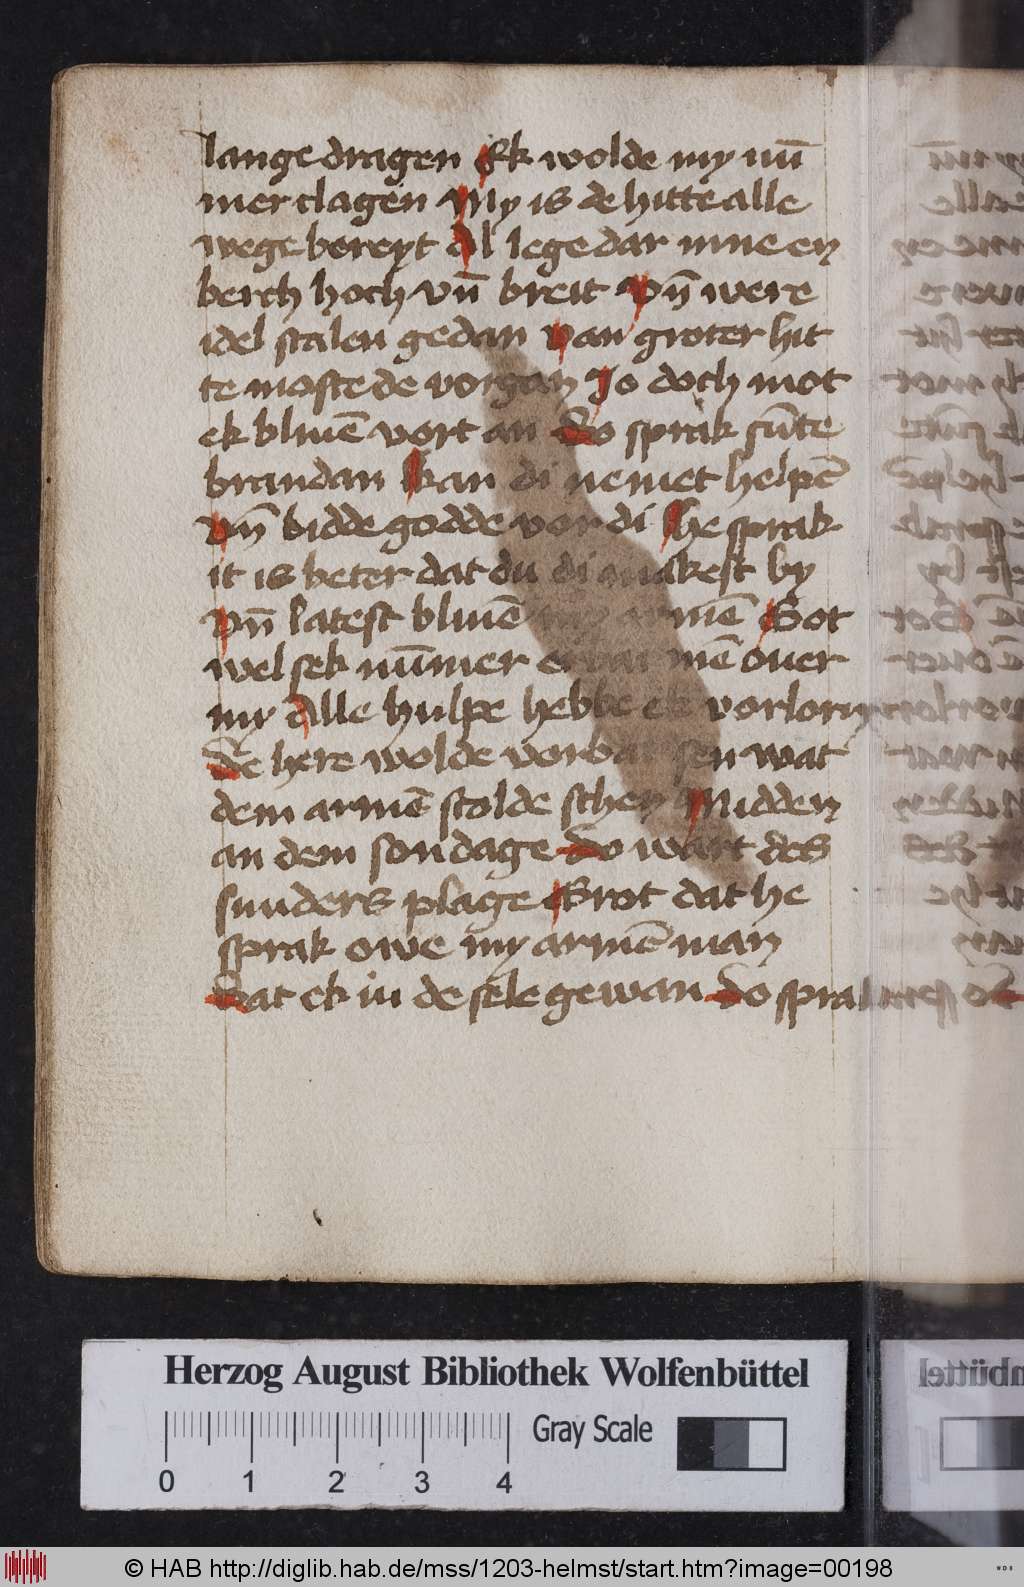 lange dragen Ek wolde my nū
mer clagen My is de hitte alle
wege bereyt Al lege dar inne en
berch hoch vn̄ breit Vn̄ were
idel stalen gedan van groter hit
te moste de vorgan Jo doch mot
ek bliuē vort an Do sprak sūte
brandan kan di nemet helpē
Vn̄ bidde godde vor di he sprak
it is beter dat du di makest by
Vn̄ latest bliuē my armē Got
wel sek nūmer erbarmē ouer
my Alle hulpe hebbe ek vorlorn
De here wolde vorbat sen wat
dem armē scolde schen Midden
an dem sondage Do wart des
sunders plage Grot dat he
sprak owe my armē man
Dat ek iu de sele gewan Do sprak
Herzog August Bibliothek Wolfenbüttel
Gray Scale
0 1 2 3 4
© HAB http://diglib.hab.de/mss/1203-helmst/start.htm?image=00198